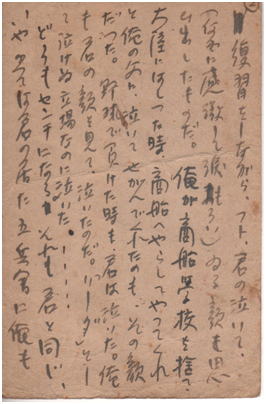 復習をしながら、フト、君の泣いて、
(何かに感激して涙して)ゐる顔を思
ひ出したものだ。俺が商船学校を捨て
大陸にはしった時、商船へやらしてやってくれ
と俺の父に泣いてせがんで呉たのも、その顔
だった。野球で負けた時も、君は泣いた。俺
も君の顔を見て、泣いたのだ。リーダとし
て泣けぬ立場なのに泣いた。――
どうもセンチになるナ、んでも君と同じ、
いや、かつては君の居た兵舎に俺も